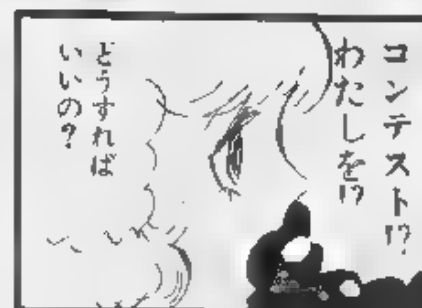 コンテスト!?
わたしを!?
どうすれば
いいの？